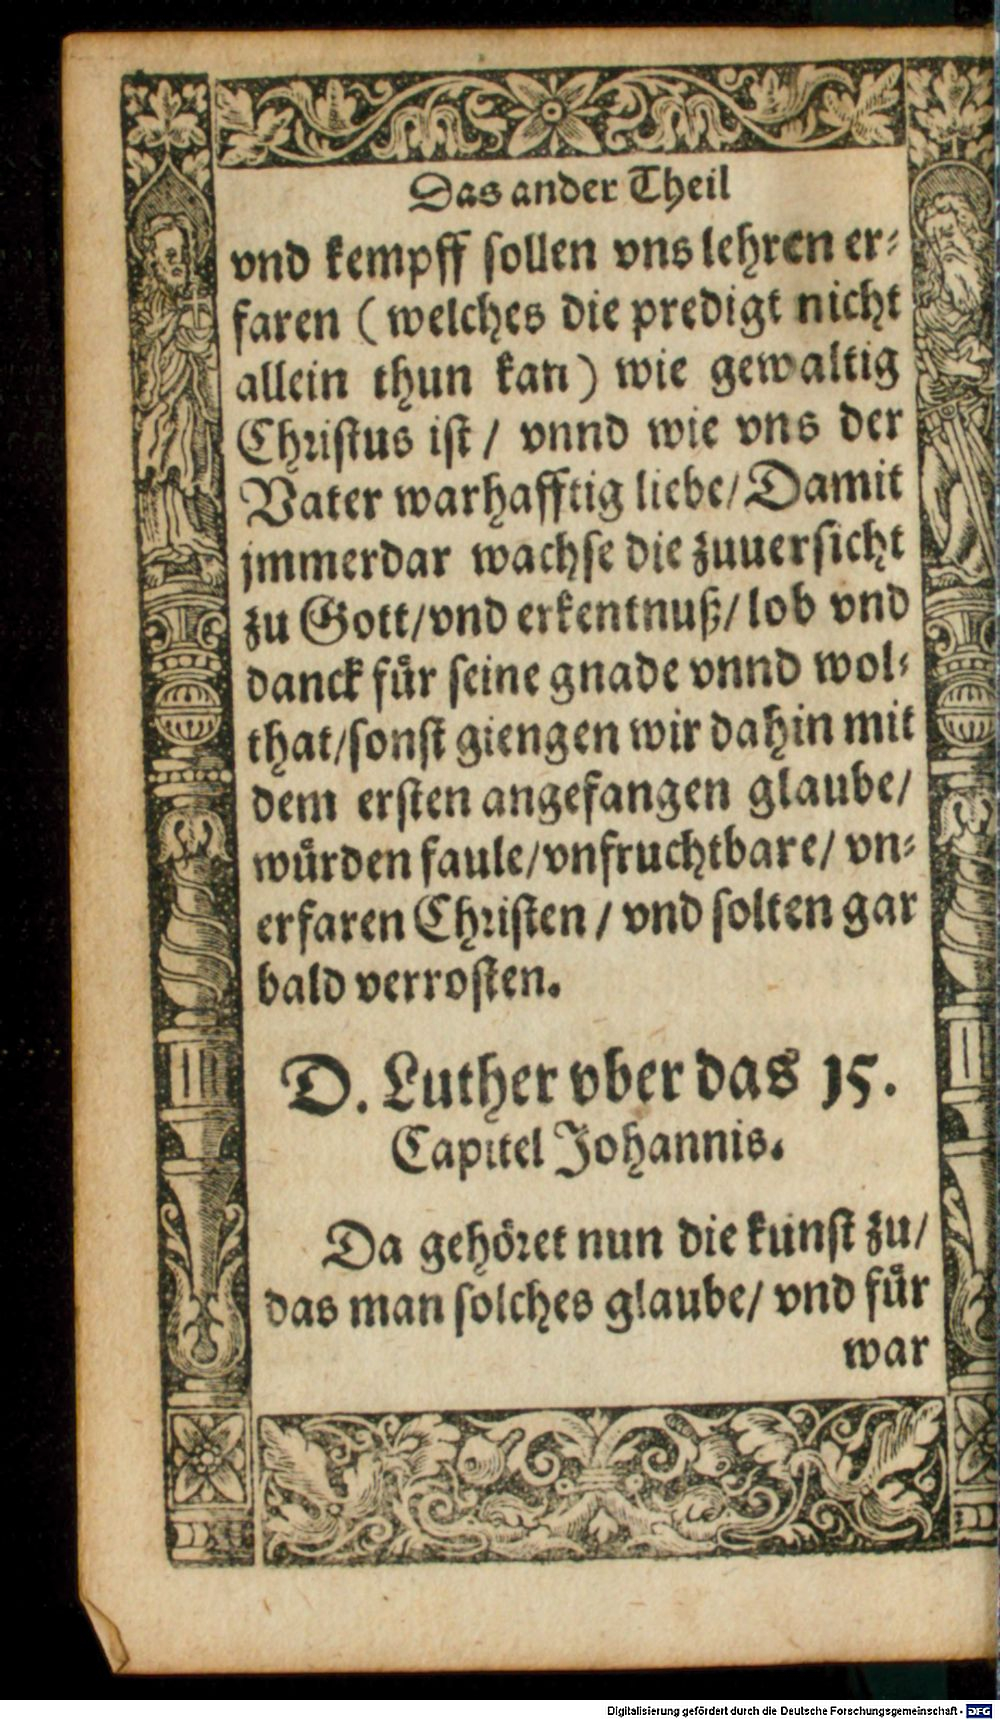 Das ander Theil
vnd kempff sollen vns lehren er⸗
faren ( welches die predigt nicht
allein thun kan ) wie gewaltig
Christus ist / vnnd wie vns der
Vater warhafftig liebe / Damit
jmmerdar wachse die zuuersicht
zu Gott / vnd erkentnuß / lob vnd
danck fuͤr seine gnade vnnd wol⸗
that / sonst giengen wir dahin mit
dem ersten angefangen glaube /
wuͤrden faule / vnfruchtbare / vn⸗
erfaren Christen / vnd solten gar
bald verrosten.
D. Luther vber das 15.
Capitel Johannis.
Da gehöret nun die kunst zu /
das man solches glaube / vnd fuͤr
war
Digitalisierung gefördert durch die Deutsche Forschungsgemeinschaft - DFG